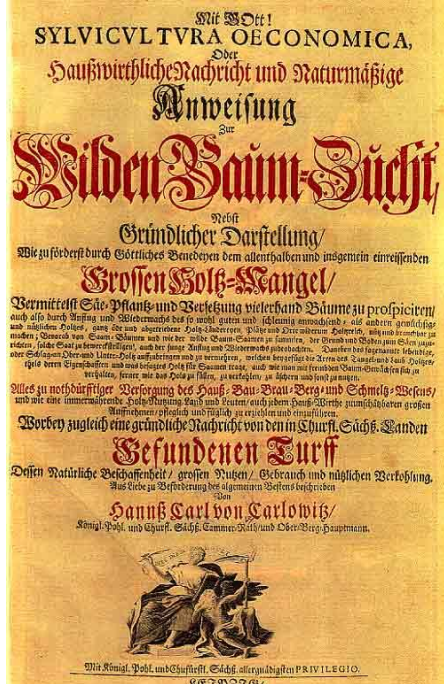 Mit GOtt!
SYLVICVLTVRA OECONOMICA,
Oder
Haußwirthliche Nachricht und Naturmäßige
Anweisung
Zur
Wilden Baum-Zucht,
Nebst
Gründlicher Darstellung/
Wie zu förderst durch Göttliches Benedeyen dem allenthalben und insgemein einreissenden
Grossen Holtz-Mangel/
Vermittelst Säe-Pflantz-und Versetzung vielerhand Bäume zu prospiciren/
auch also durch Anflug und Wiederwachs des so wohl guten und schleunig anwachsend- als andern gewüchsig-
und nützlichen Holtzes, gantz öde und abgetriebene Holtz-Ländereyen, Plätze und Orte wiederum Holtzreich, nütz und brauchbar zu
machen; Bevorab von Saam-Bäumen und wie der wilde Baum-Saamen zu sammlen, der Grund und Boden zum Säen zuzu-
richten, solche Saat zu bewerckstelligen, auch der junge Anflug und Wiederwachs zu beobachten. Daneben das sogenannte lebendige,
oder Schlag-an Ober-und Unter-Holtz auffzubringen und zu vermehren, welchen beygefügt die Arten des Tangel-und Laub-Holtzes,
theils deren Eigenschafften und was besagtes Holtz für Saamen trage, auch wie man mit frembden Baum-Gewächsen sich zu
verhalten, ferner wie das Holtz zu fällen, zu verkohlen, zu äschern und sonst zu nutzen.
Alles zu nothdürfftiger Versorgung des Hauß-Bau-Brau-Berg-und Schmeltz-Wesens,
und wie eine immerwährende Holtz-Nutzung, Land und Leuten, auch jedem Hauß-Wirthe zu unschätzbaren grossen
Auffnehmen, pfleglich und füglich zu erziehlen und einzuführen,
Worbey zugleich eine gründliche Nachricht von den in Churfl. Sächß. Landen
Gefundenen Turff
Dessen Natürliche Beschaffenheit/ grossen Nutzen/ Gebrauch und nützlichen Verkohlung.
Aus Liebe zu Beförderung des algemeinen Bestens beschrieben
Von
Hannß Carl von Carlowitz/
Königl. Pohl. und Churfl. Sächß. Cammer-Rath/ und Ober-Berg-Hauptmann.
Mit Königl. Pohl. und Churfürstl. Sächß. allergnädigsten PRIVILEGIO.
LEIPZIG/